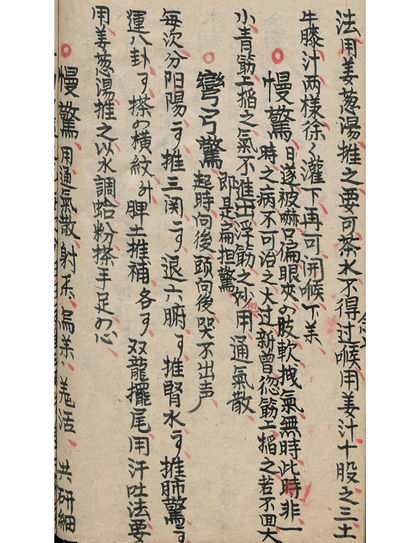 法用姜葱湯推之要可茶水不得过喉用姜汁十股之三土
牛膝汁两樣徐々灌下再可開喉下羙
慢驚
日遂被嚇只扁眼夾の肢軟拽氣無時此時非一
時之病不可治之大过新曾筋工掐之若不面大
小青筋工掐之氣不進出浮筋之妙用通氣散
即是扁担驚
彎弓驚
起時向後頭向後哭不出声
每次分阴陽推三関退六腑推腎水推肺驚
運八卦搽の横紋脾土推補各双龍擺尾用汗吐法要
用姜葱湯推之以水調蛤粉搽手足の心
慢驚用通氣散射不烏羙羗活共研細